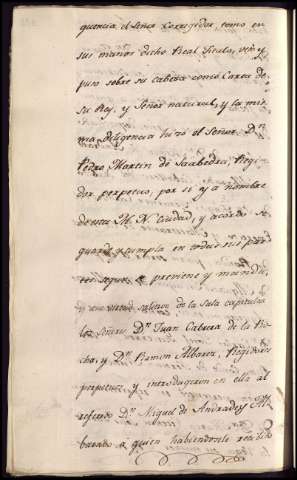 quencia el Señor Corregidor tomó en
sus manos dicho Real Titulo, besó y
puso sobre su cabeza como Carta de
su Rey, y Señor natural, y la mis-
ma diligencia hizo el Señor Dn.
Pedro Martin de Saabedra, Regi-
dor perpetuo, por si y a nombre
de esta M. N. Ciudad, y acordó se
guarde y cumpla en todo
segun se previene y manda,
en su virtud salieron de la Sala capitular
los Señores Dn. Juan Cabrera de la Ro-
cha, y Dn. Ramon Albarez, Regidores
perpetuos y introdugeron en ella al
referido Dn. Miguel de Andrade y Al-
barado a quien habiendosele recibido